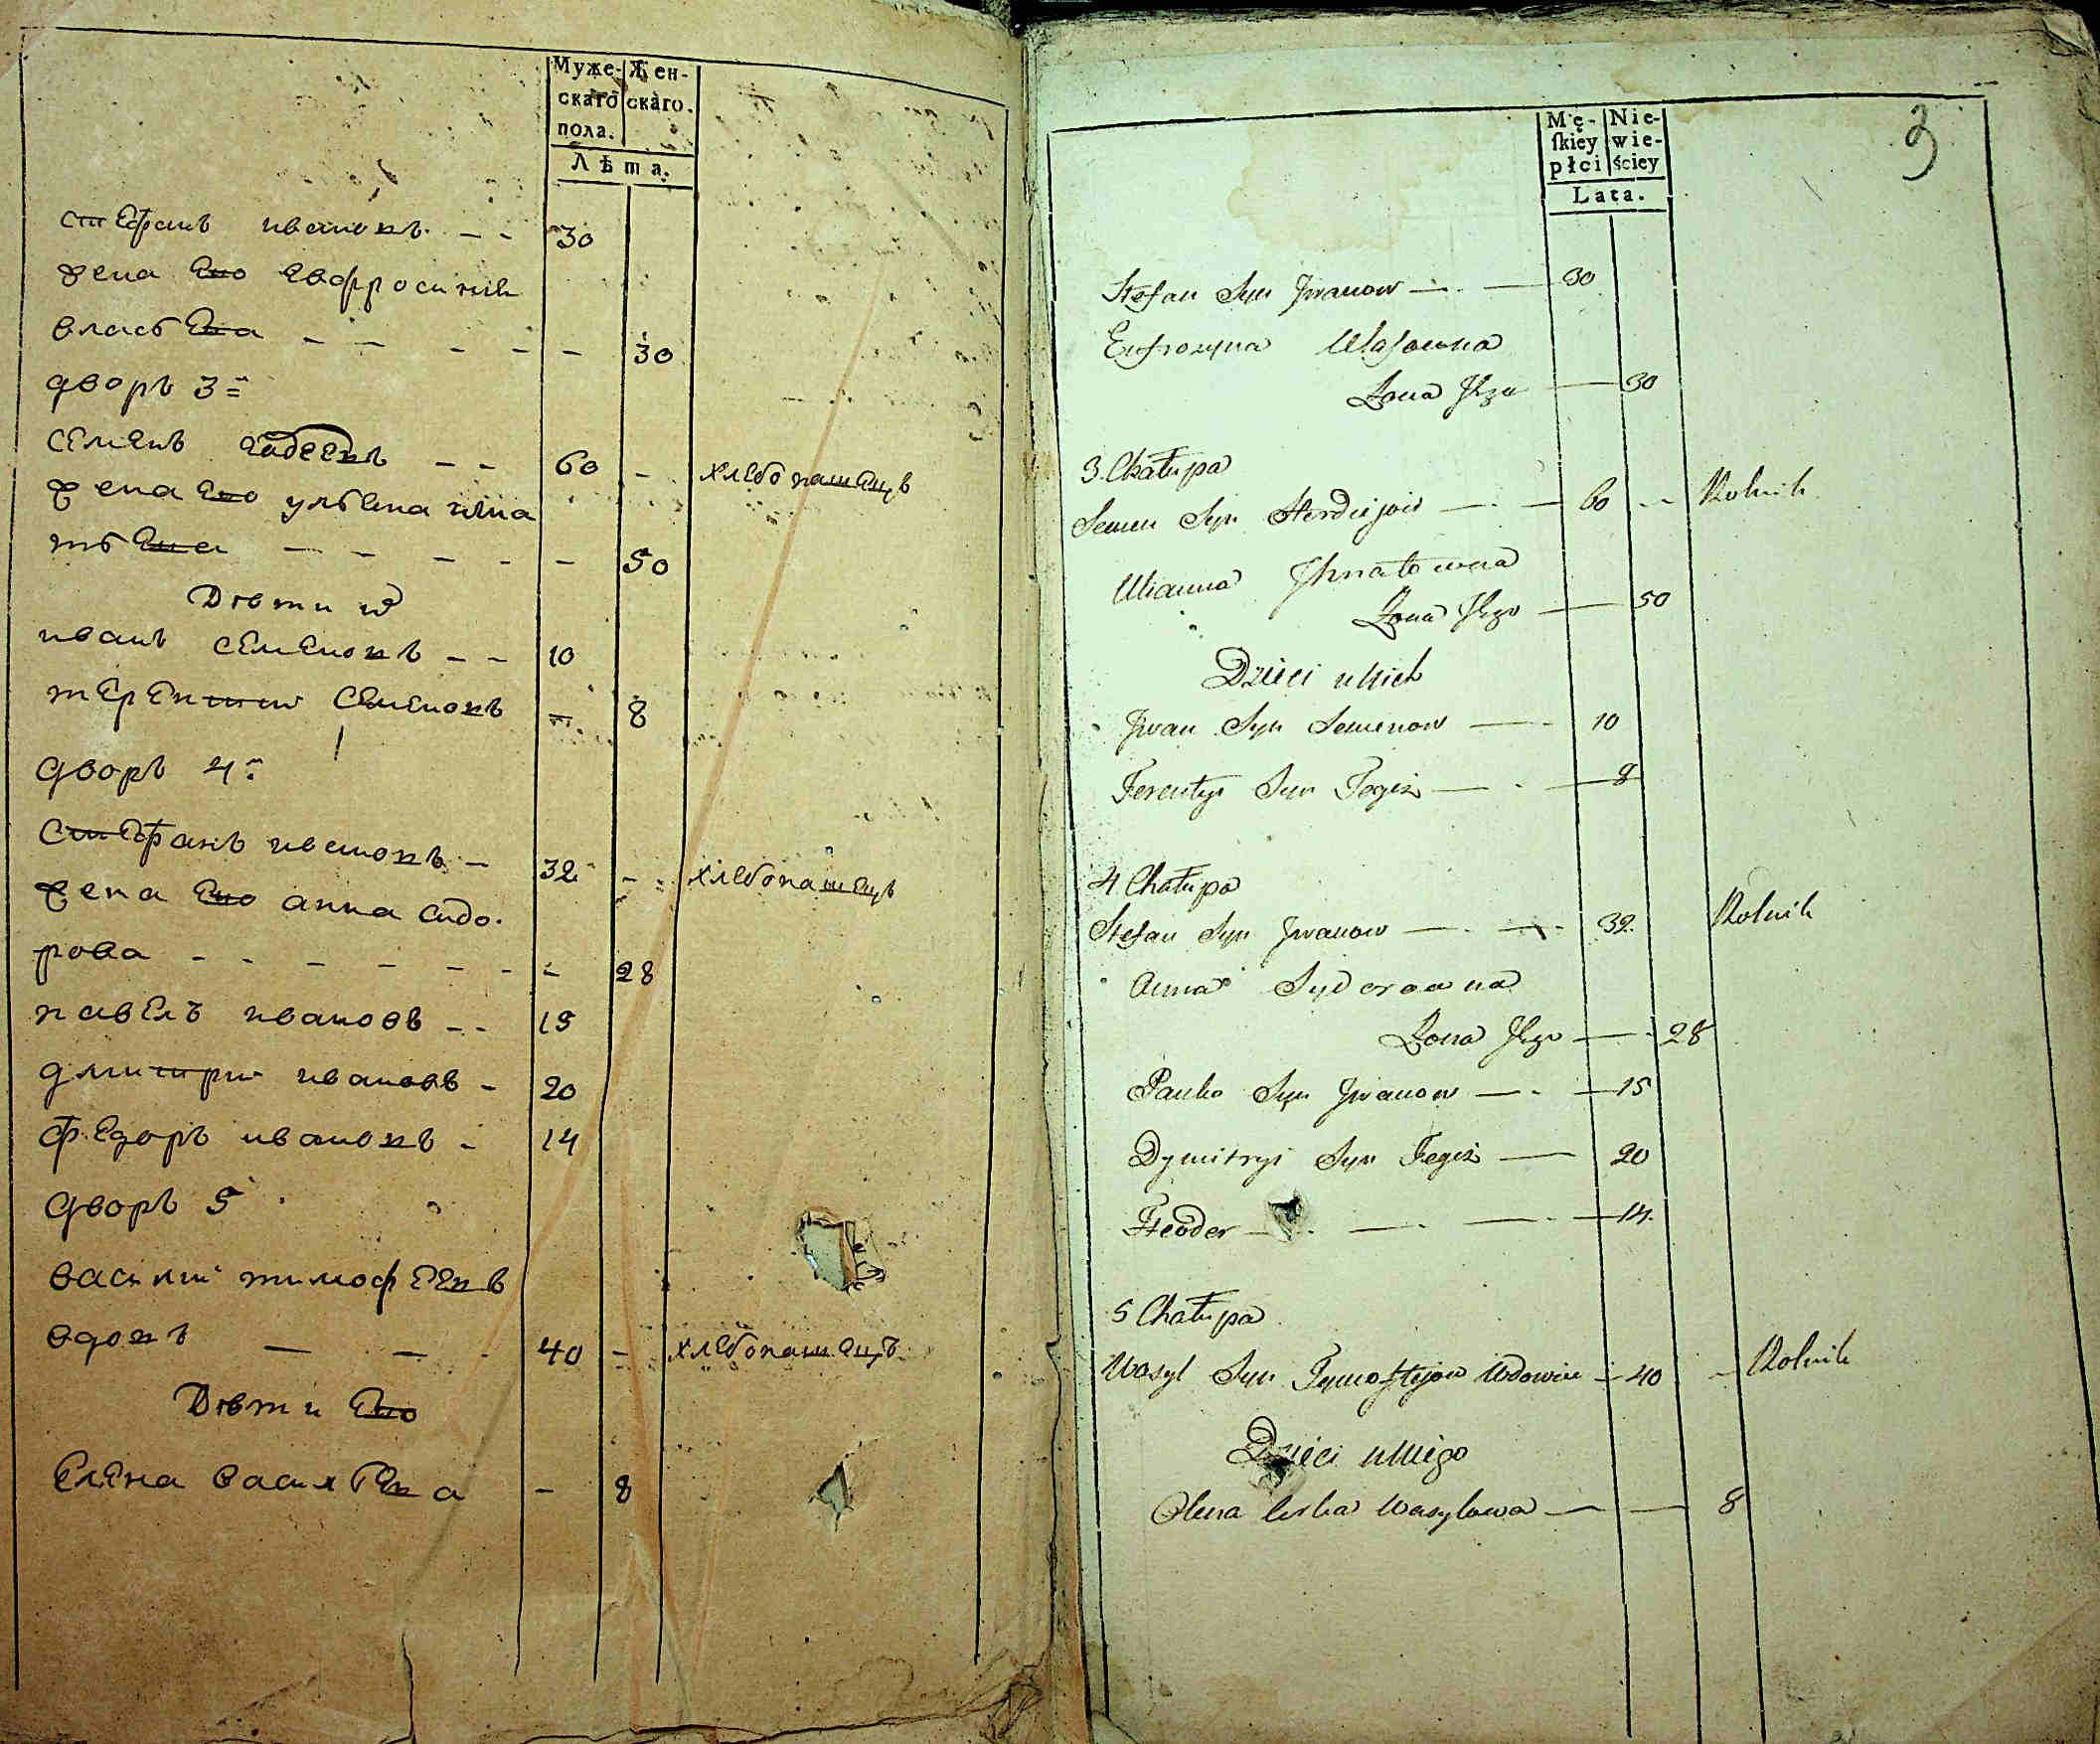 Муже- Жен-
скаго скаго.
пола.
Лѣта.
стефанъ ивановъ - - 30
жена ево евфросиния
власьева - - - - - 30
дворъ 3=
семенъ - - 60 - хлебопашецъ
жена ево ульяна игна
тьева - - - - - 50
Дѣти
иванъ семеновъ - - 10
терентий семеновъ - 8
дворъ 4:
Стефанъ ивановъ - 32 - хлебопашецъ
жена ево анна сидо-
рова - - - - - - - 28
павелъ ивановъ - - 15
дмитрий ивановъ - 20
федоръ ивановъ - 14
дворъ 5
василий тимофеевъ
вдовъ - - 40 - хлебопашецъ
Дѣти ево
Елена васильева - 8
3
Mę- Nie-
ſkiey wie-
płci ściey
Lata.
Stefan Syn Jwanow - - 30
Eufrozyna Własowna
Żona Jego - 30
3 Chałupa
Semen Syn - - 60 - Rolnik
Ulianna Jhnatowna
Żona Jego - 50
Dzieci unich
Jwan Syn Semenow - 10
Terentyi Syn Tegoż - - 8
4 Chałupa
Stefan Syn Jwanow - - 32 Rolnik
Anna Sydorowna
Żona Jego - 28
Pawło Syn Jwanow - - 15
Dymitryi Syn Tegoż - 20
Fteoder - - - 14.
5 Chałupa
Wasyl Syn Tymofteiow Wdowiec - 40 - Rolnik
Dzieci uniego
Olena Corka Wasylowa - - 8